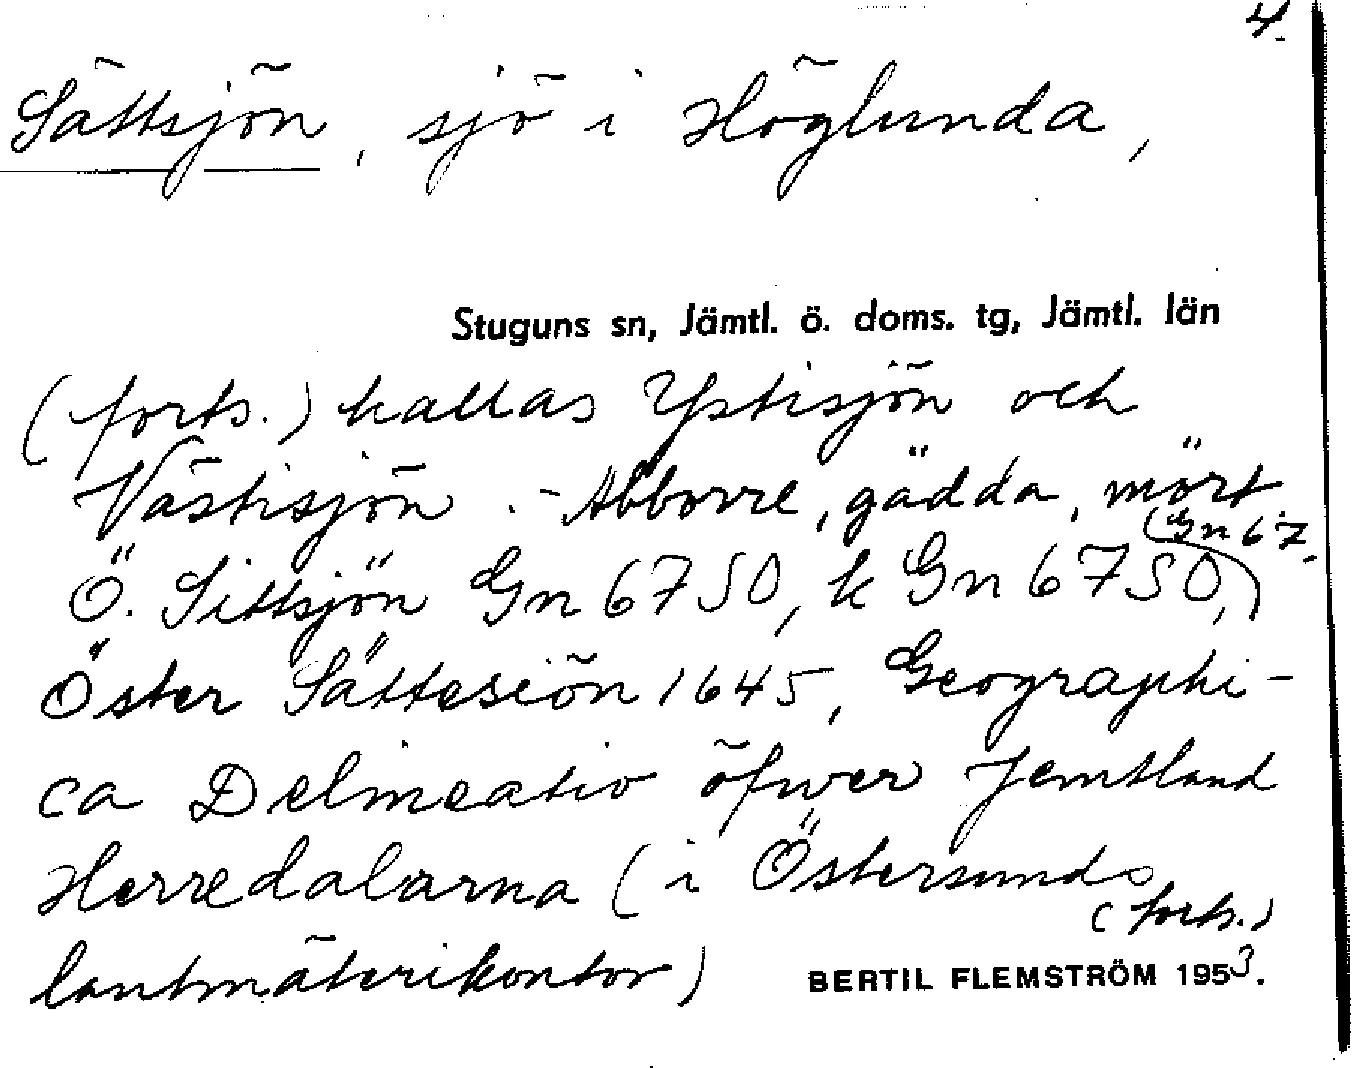 4.
Sättsjön, sjö i Höglunda,
Stuguns sn, Jämtl. ö. doms. tg, Jämtl. län
(forts.) kallas Ystisjön och
Västisjön. - Abborre, gädda, mört
(Gn 67.
Ö. Sittsjön Gn 67 SO, k Gn 67 SO,)
Öster Sättesiön 1645, Geographi-
ca Delineatio öfwer Jemtland
Herredalarna (i Östersunds
(forts.)
lantmäterikontor)
BERTIL FLEMSTRÖM 1953.